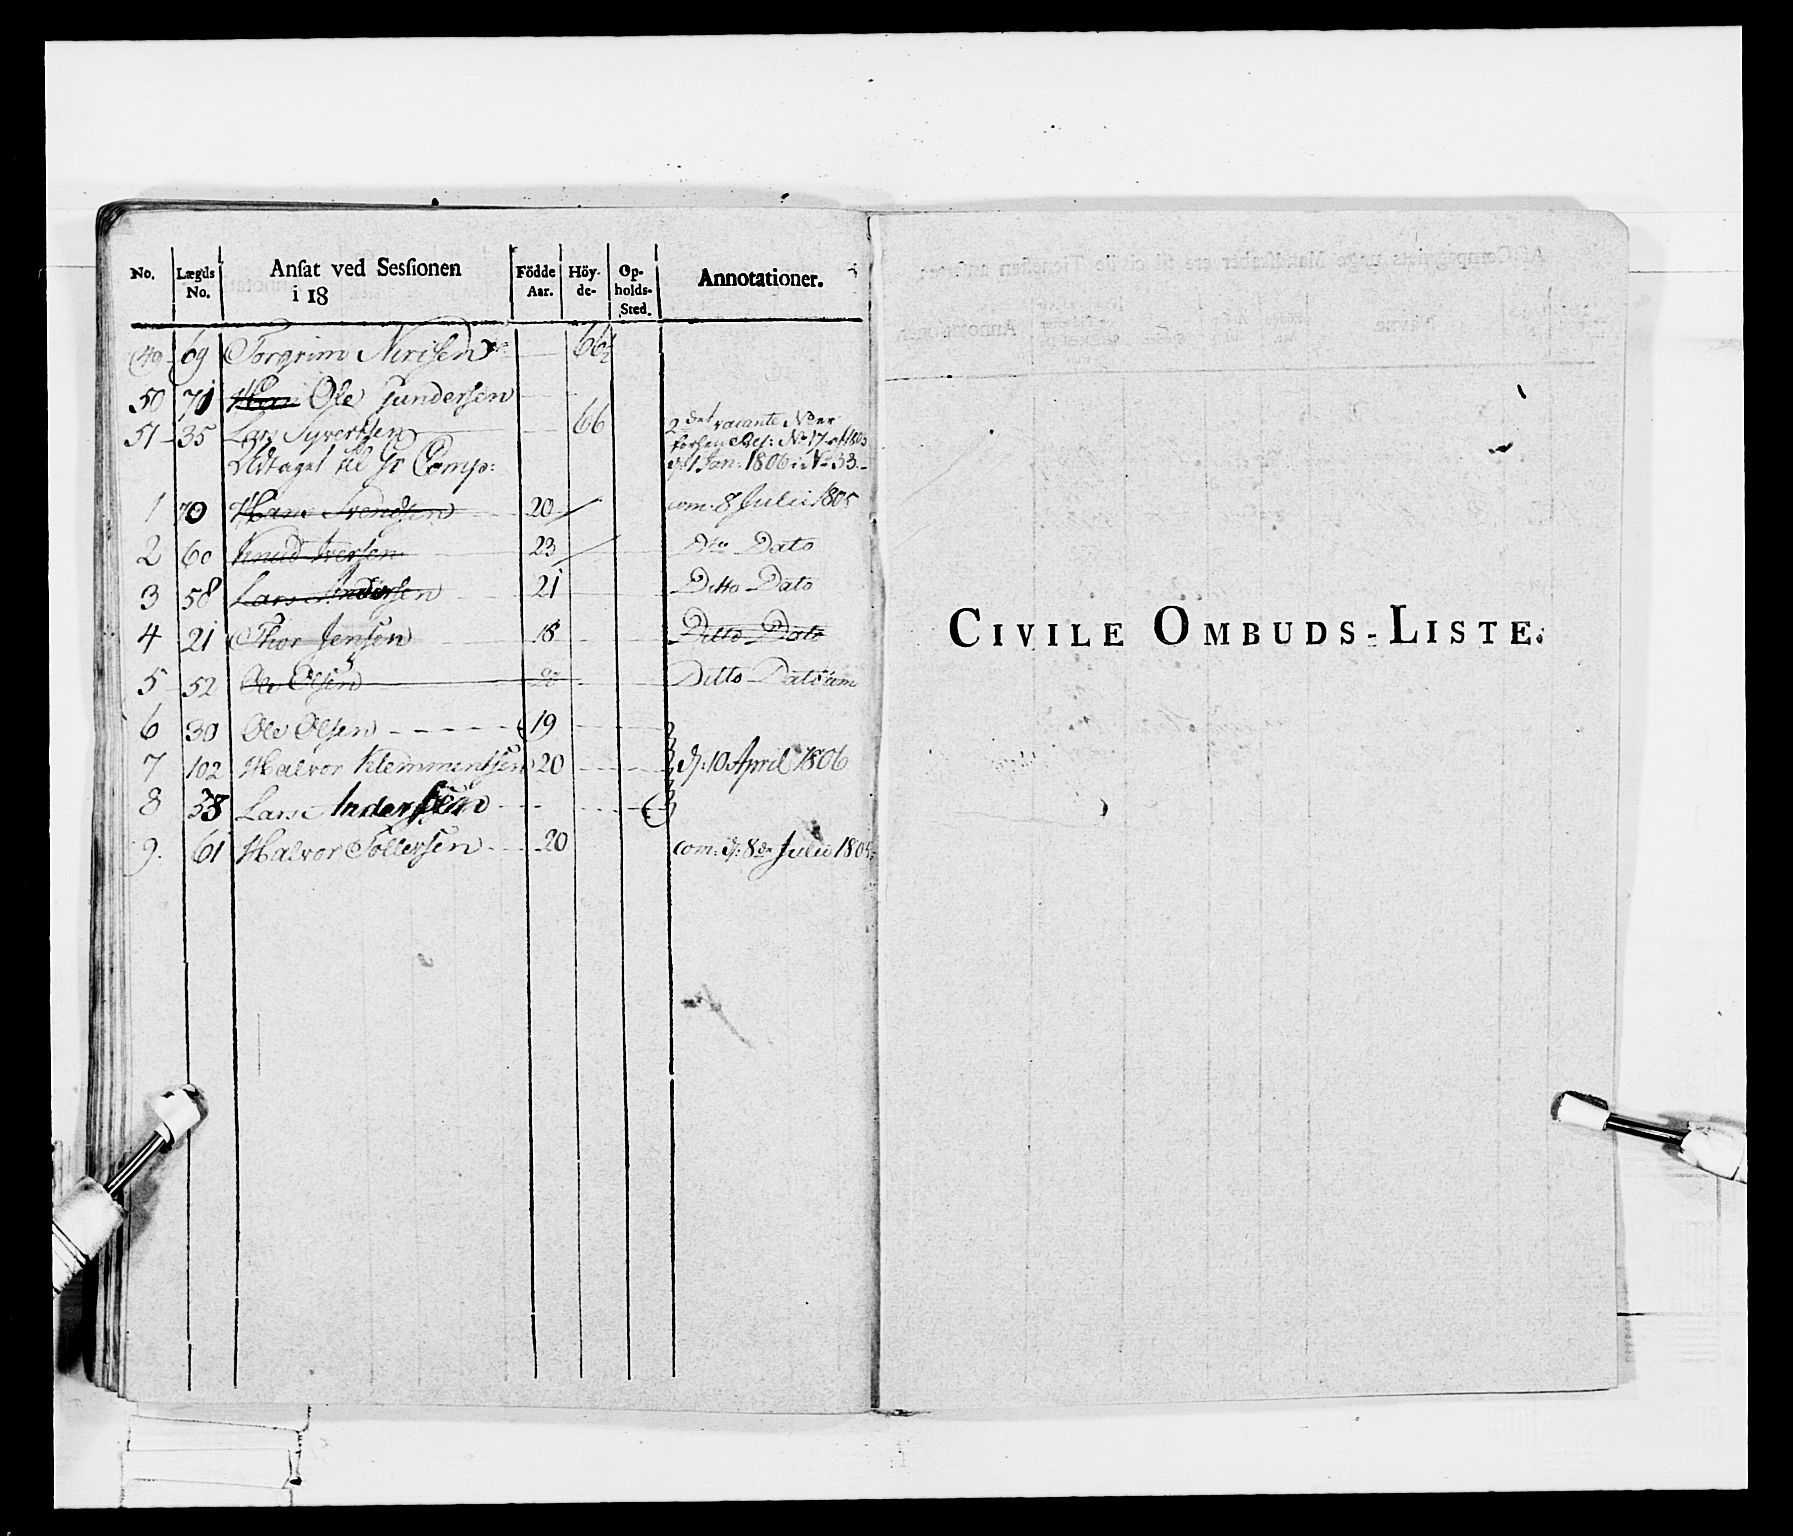 No. Lægds No. Ansat ved Sessionen i 18 Födde Aar. Höy- de- Op- holds- Sted. Annotationer.
49 69 Torgrim Nerisen 66½
50 71 Ole Gundersen
51 35 Lars Syvertsen 66 2det vacante
Udtaget til Comp: 1 Jan: 1806 i No 33.
1 70 Hans Svendsen 20 com: 8 Julii 1805
2 60 Knud Iversen 23 Dto Dato
3 58 Lars Andersen 21 Ditto Dato
4 21 Thor Jensen 18 Ditto Dato
5 52 Ole Olsen 20 Ditto Dato
6 30 Ole Olsen 19
7 102 Halvor Klemmentsen 20 d: 10 April 1806
8 58 Lars Andersen
9. 61 Halvor Tollefsen 20 com: d: 8de Julii 1805
CIVILE OMBUDS-LISTE.